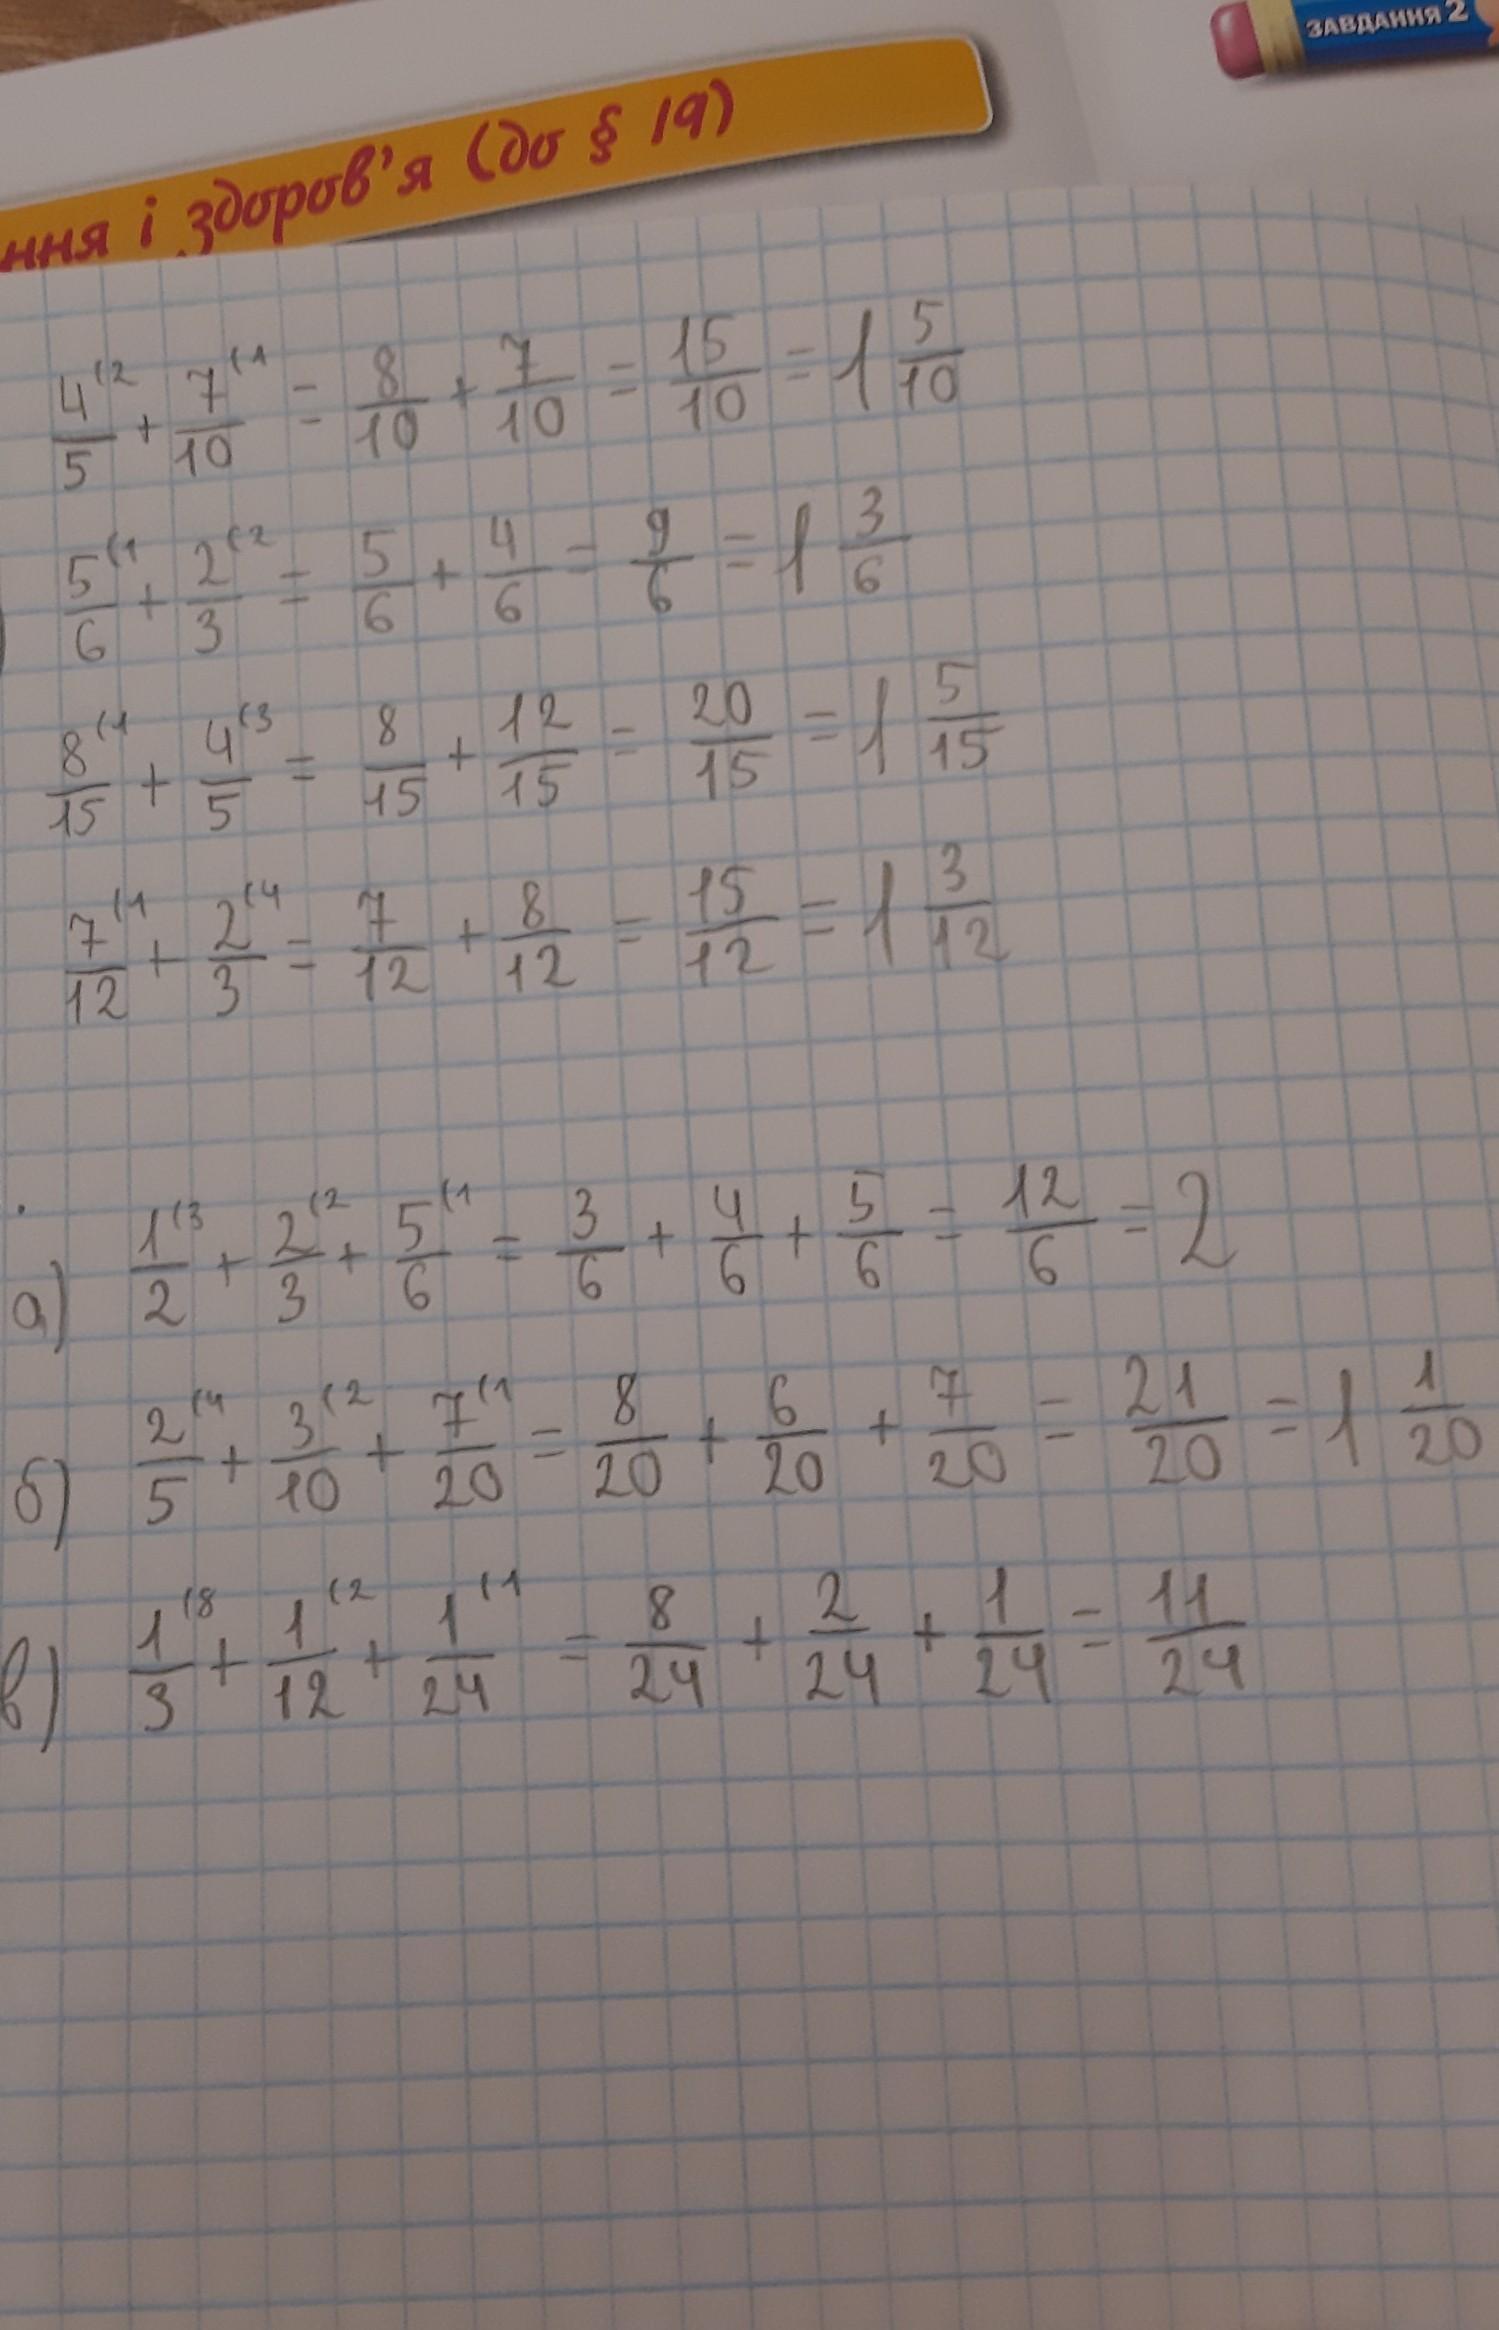 ЗАВДАННЯ 2
ння і здоров'я (до § 19)
4/5⁽² + 7/10⁽¹ = 8/10 + 7/10 = 15/10 = 1 5/10
) 5/6⁽¹ + 2/3⁽² = 5/6 + 4/6 = 9/6 = 1 3/6
8/15⁽¹ + 4/5⁽³ = 8/15 + 12/15 = 20/15 = 1 5/15
7/12⁽¹ + 2/3⁽⁴ = 7/12 + 8/12 = 15/12 = 1 3/12
а) 1/2⁽³ + 2/3⁽² + 5/6⁽¹ = 3/6 + 4/6 + 5/6 = 12/6 = 2
б) 2/5⁽⁴ + 3/10⁽² + 7/20⁽¹ = 8/20 + 6/20 + 7/20 = 21/20 = 1 1/20
в) 1/3⁽⁸ + 1/12⁽² + 1/24⁽¹ = 8/24 + 2/24 + 1/24 = 11/24